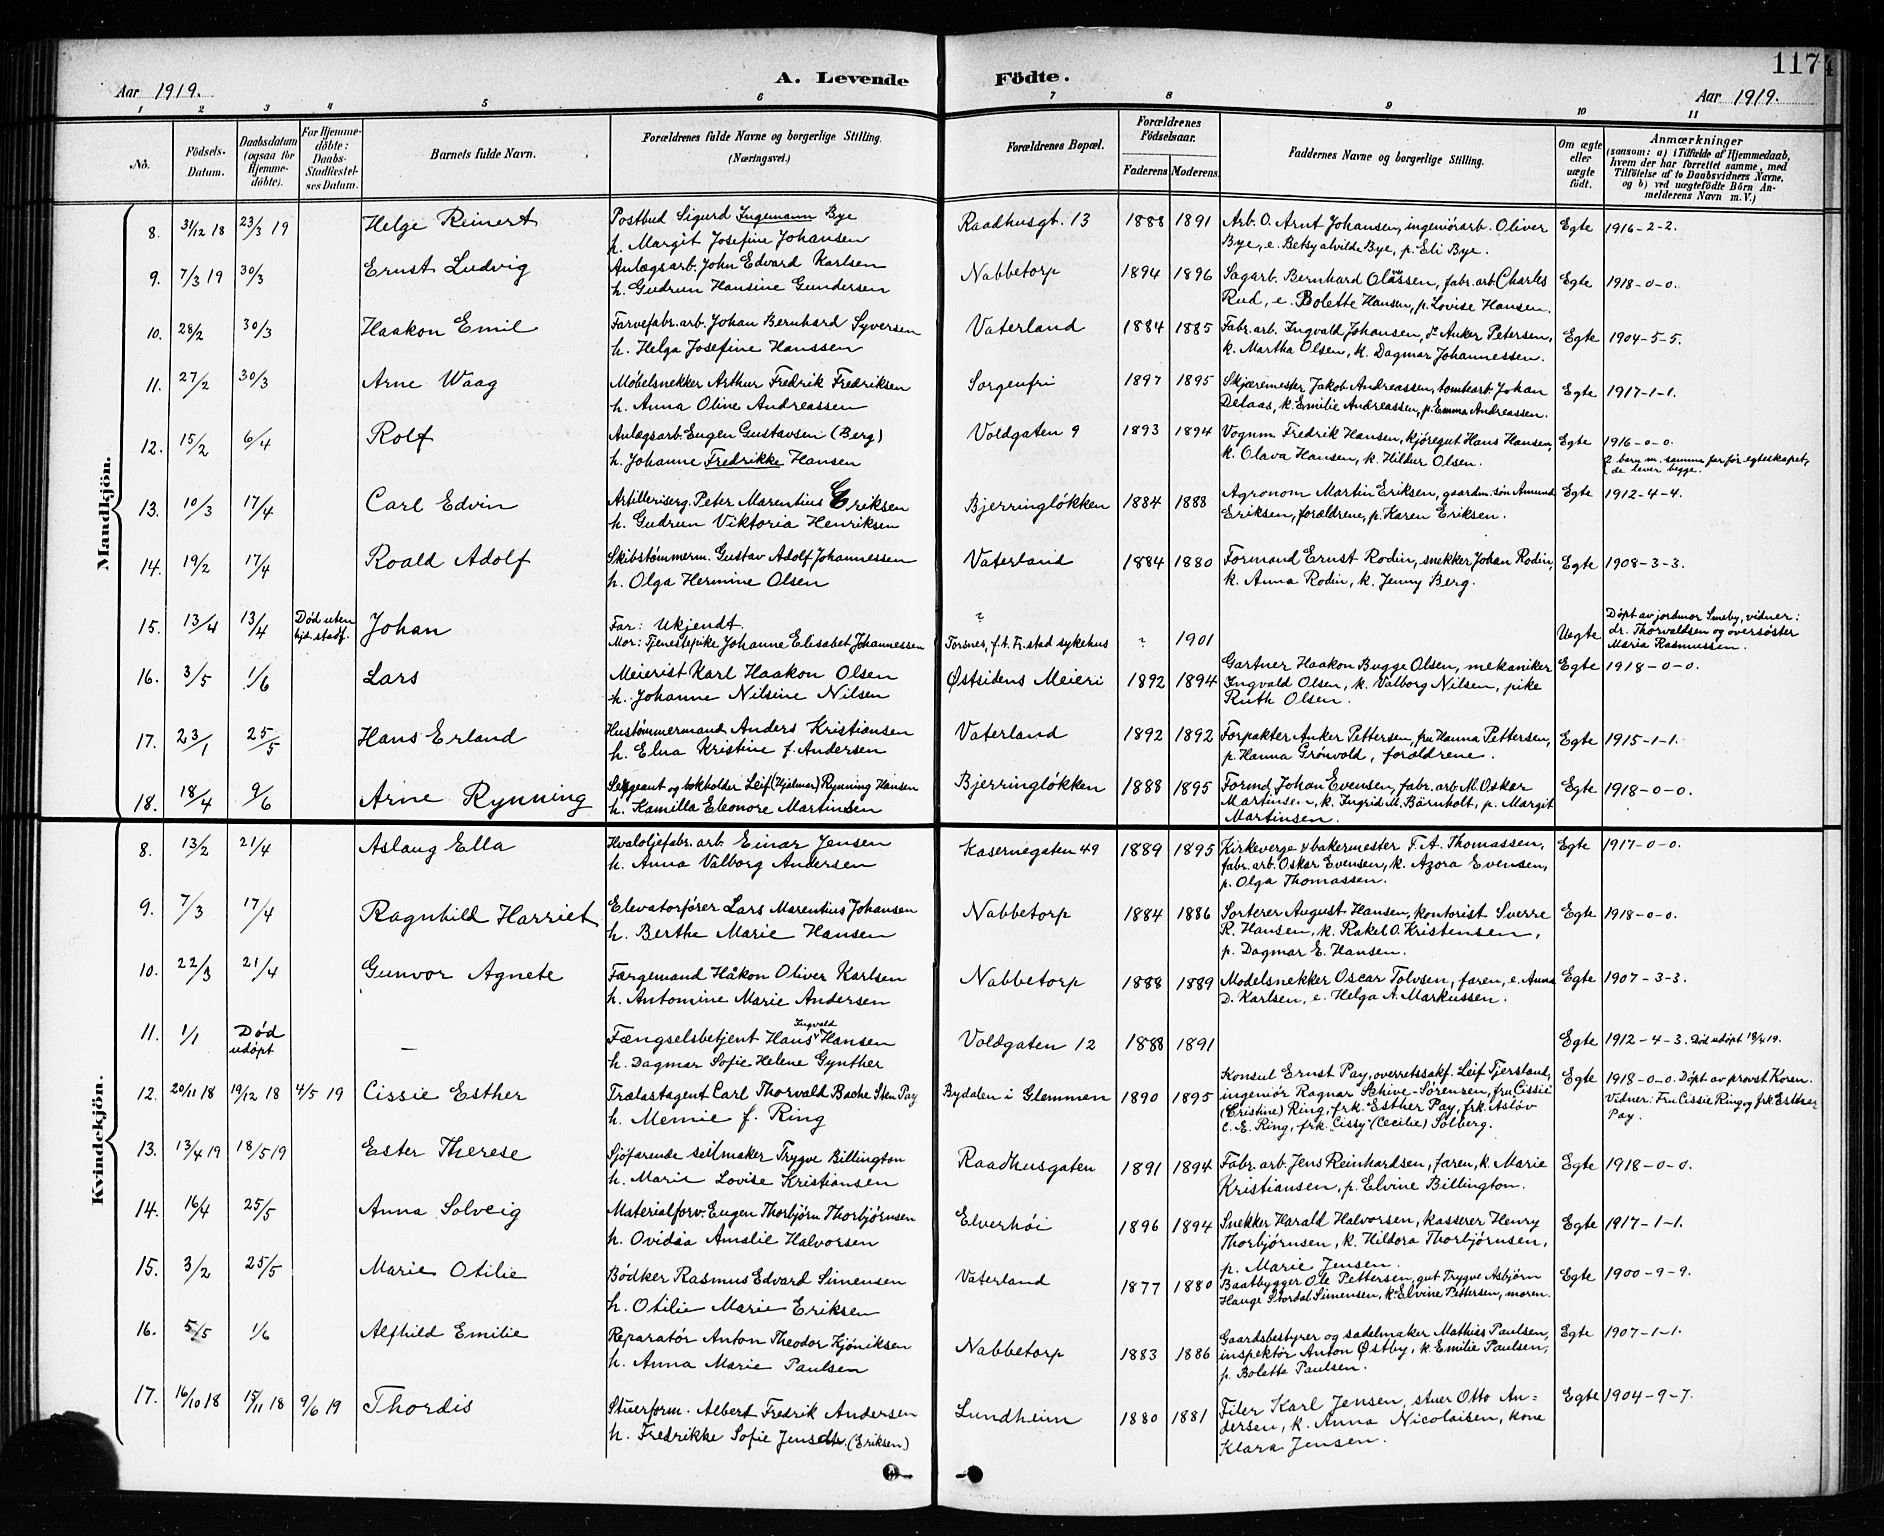 117
A. Levende Födte.
Aar 1919.
Aar 1919.
1 2 3 4 5 6 7 8 9 10 11
No.
Födsels-Datum.
Daabsdatum (ogsaa for Hjemmedöbte).
For Hjemmedöbte: Daabs-Stadfæstelses Datum.
Barnets fulde Navn.
Forældrenes fulde Navne og borgerlige Stilling. (Næringsvei.)
Forældrenes Bopæl.
Forældrenes Födselsaar.
Faderens Moderens.
Faddernes Navne og borgerlige Stilling.
Om ægte eller uægte födt.
Anmærkninger (saasom: a) i Tilfælde af Hjemmedaab, hvem der har forrettet samme, med Tilföielse af to Daabsvidners Navne, og b) ved uægtefödte Börn Anmelderens Navn m. V.)
Mandkjön.
8. 31/12 18 23/3 19 Helge Reinert
Postbud Sigurd Ingemann Bye
h. Margit Josefine Johansen
Raadhusgt. 13 1888 1891
Arb. O. Arnt Johansen, ingeniörarb. Oliver
Bye, e. Betsy Alvilde Bye, p. Eli Bye.
Egte 1916-2-2.
9. 7/3 19 30/3 Ernst Ludvig
Anlægsarb. John Edvard Karlsen
h. Gudrun Hansine Gundersen
Nabbetorp 1894 1896
Sagarb. Bernhard Olassen, fabr. arb. Charles
Rud, e. Bolette Hansen, p. Lovise Hansen.
Egte 1918-0-0.
10. 28/2 30/3 Haakon Emil
Farvefabr. arb. Johan Bernhard Syversen
h. Helga Josefine Hanssen
Vaterland 1884 1885
Fabr. arb. Ingvald Johansen, do Anker Petersen,
k. Martha Olsen, k. Dagmar Johannessen.
Egte 1904-5-5.
11. 27/2 30/3 Arne Waag
Møbelsnekker Arthur Fredrik Fredriksen
h. Anna Oline Andreassen
Sorgenfri 1897 1895
Skjæremester Jakob Andreassen, tomtearb. Johan
Delaas, k. Emilie Andreassen, p. Emma Andreassen.
Egte 1917-1-1.
12. 15/2 6/4 Rolf
Anlægsarb. Eugen Gustavsen (Berg)
h. Johanne Fredrikke Hansen
Voldgaten 9 1893 1894
Vognm. Fredrik Hansen, kjöregut Hans Hansen,
k. Olava Hansen, k. Hildur Olsen.
Egte 1916-0-0.
2 barn m. samme far før egteskapet,
de lever begge.
13. 10/3 17/4 Carl Edvin
Artilleriserg. Peter Marentius Eriksen
h. Gudrun Viktoria Henriksen
Bjerringløkken 1884 1888
Agronom Martin Eriksen, gaardm. søn Amund
Eriksen, forældrene, p. Karen Eriksen.
Egte 1912-4-4.
14. 19/2 17/4 Roald Adolf
Skibstømmerm. Gustav Adolf Johannessen
h. Olga Hermine Olsen
Vaterland 1884 1880
Formand Ernst Rodin, snekker Johan Rodin,
k. Anna Rodin, k. Jenny Berg.
Egte 1908-3-3.
15. 13/4 13/4 Død uten hjd. stadf. Johan
Far: Ukjendt.
Mor: Tjenestepike Johanne Elisabet Johannessen
?
Torsnes, f. t. Fr.stad sykehus ? 1901
Uegte
Døpt av jordmor Smeby, vidner:
dr. Thorvaldsen og oversøster
Maria Rasmussen.
16. 3/5 1/6 Lars
Meierist Karl Haakon Olsen
h. Johanne Nilsine Nilsen
Østsidens Meieri 1892 1894
Gartner Haakon Bugge Olsen, mekaniker
Ingvald Olsen, k. Valborg Nilsen, pike
Ruth Olsen.
Egte 1918-0-0.
17. 23/1 25/5 Hans Erland
Hustømmermand Anders Kristiansen
h. Elna Kristine f. Andersen
Vaterland 1892 1892
Forpakter Anker Pettersen, fru Hanna Pettersen,
p. Hanna Grönvold, forældrene.
Egte 1915-1-1.
18. 18/4 9/6 Arne Rynning
Sergeant og bokholder Leif (Hjalmar) Rynning Hansen
h. Kamilla Eleonore Martinsen
Bjerringløkken 1888 1895
Formd. Johan Evensen, fabr. arb. M. Oskar
Martinsen, k. Ingrid M. Bärnholt, p. Margit
Martinsen.
Egte 1918-0-0.
Kvindekjön.
8. 13/2 21/4 Aslaug Ella
Hvaloljefabr. arb. Einar Jensen
h. Anna Valborg Andersen
Kasernegaten 49 1889 1895
Kirkeverge & bakermester T. A. Thomassen,
fabr. arb. Oskar Evensen, k. Azora Evensen,
p. Olga Thomassen.
Egte 1917-0-0.
9. 7/3 17/4 Ragnhild Harriet
Elevatorfører Lars Marentius Johansen
h. Berthe Marie Hansen
Nabbetorp 1884 1886
Sorterer August Hansen, kontorist Sverre
R. Hansen, k. Rakel O. Kristensen,
p. Dagmar E. Hansen.
Egte 1918-0-0.
10. 22/3 21/4 Gunvor Agnete
Færgemand Håkon Oliver Karlsen
h. Antomine Marie Andersen
Nabbetorp 1888 1889
Modelsnekker Oscar Tolvsen, faren, e. Anna
D. Karlsen, e. Helga A. Markussen.
Egte 1907-3-3.
11. 1/1 Død udøpt —
Fængselsbetjent Hans Ingvald Hansen
h. Dagmar Sofie Helene Gynther
Voldgaten 12 1888 1891
Egte 1912-4-3. Død udøpt 18/4 19.
12. 20/11 18 19/12 18 4/5 19 Cissie Esther
Trælastagent Carl Thorvald Bache Sten Pay
h. Memie f. Ring
Bydalen i Glemmen 1890 1895
Konsul Ernst Pay, overretssakf. Leif Tjerstland,
ingeniør Ragnar Schive-Sørensen, fru Cissie
(Cristine) Ring, frk. Esther Pay, frk. Asløv
C. E. Ring, frk. Cissy (Cecilie) Solberg.
Egte 1918-0-0. Døpt av provst Koren.
Vidner: Fru Cissie Ring og frk. Esther
Pay.
13. 13/4 19 18/5 19 Ester Therese
Sjöfarende seilmaker Trygve Billington
h. Marie Lovise Kristiansen
Raadhusgaten 1891 1894
Fabr. arb. Jens Reinhardsen, faren, k. Marie
Kristiansen, p. Elvine Billington.
Egte 1918-0-0.
14. 16/4 25/5 Anna Solveig
Materialforv. Eugen Thorbjörn Thorbjörnsen
h. Ovidia Amalie Halvorsen
Elverhöi 1896 1894
Snekker Harald Halvorsen, kasserer Henry
Thorbjörnsen, k. Hildora Thorbjörnsen,
p. Marie Jensen.
Egte 1917-1-1.
15. 3/2 25/5 Marie Otilie
Bödker Rasmus Edvard Simensen
h. Otilie Marie Eriksen
Vaterland 1877 1880
Baatbygger Ole Pettersen, gut Trygve Asbjörn
Hauge Stordal Simensen, k. Elvine Pettersen, moren.
Egte 1900-9-9.
16. 5/5 1/6 Alfhild Emilie
Reparatør Anton Theodor Kjöniksen
h. Anna Marie Paulsen
Nabbetorp 1883 1886
Gaardsbestyrer og sadelmaker Mathias Paulsen,
inspektör Anton Østby, k. Emilie Paulsen,
p. Bolette Paulsen.
Egte 1907-1-1.
17. 16/10 18 15/11 18 9/6 19 Thordis
Stuerform. Albert Fredrik Andersen
h. Fredrikke Sofie (Eriksen)
Lundheim 1880 1881
Filer Karl Jensen, stuer Otto An-
dersen, k. Anna Nicolaisen, kone
Klara Jensen.
Egte 1904-9-7.